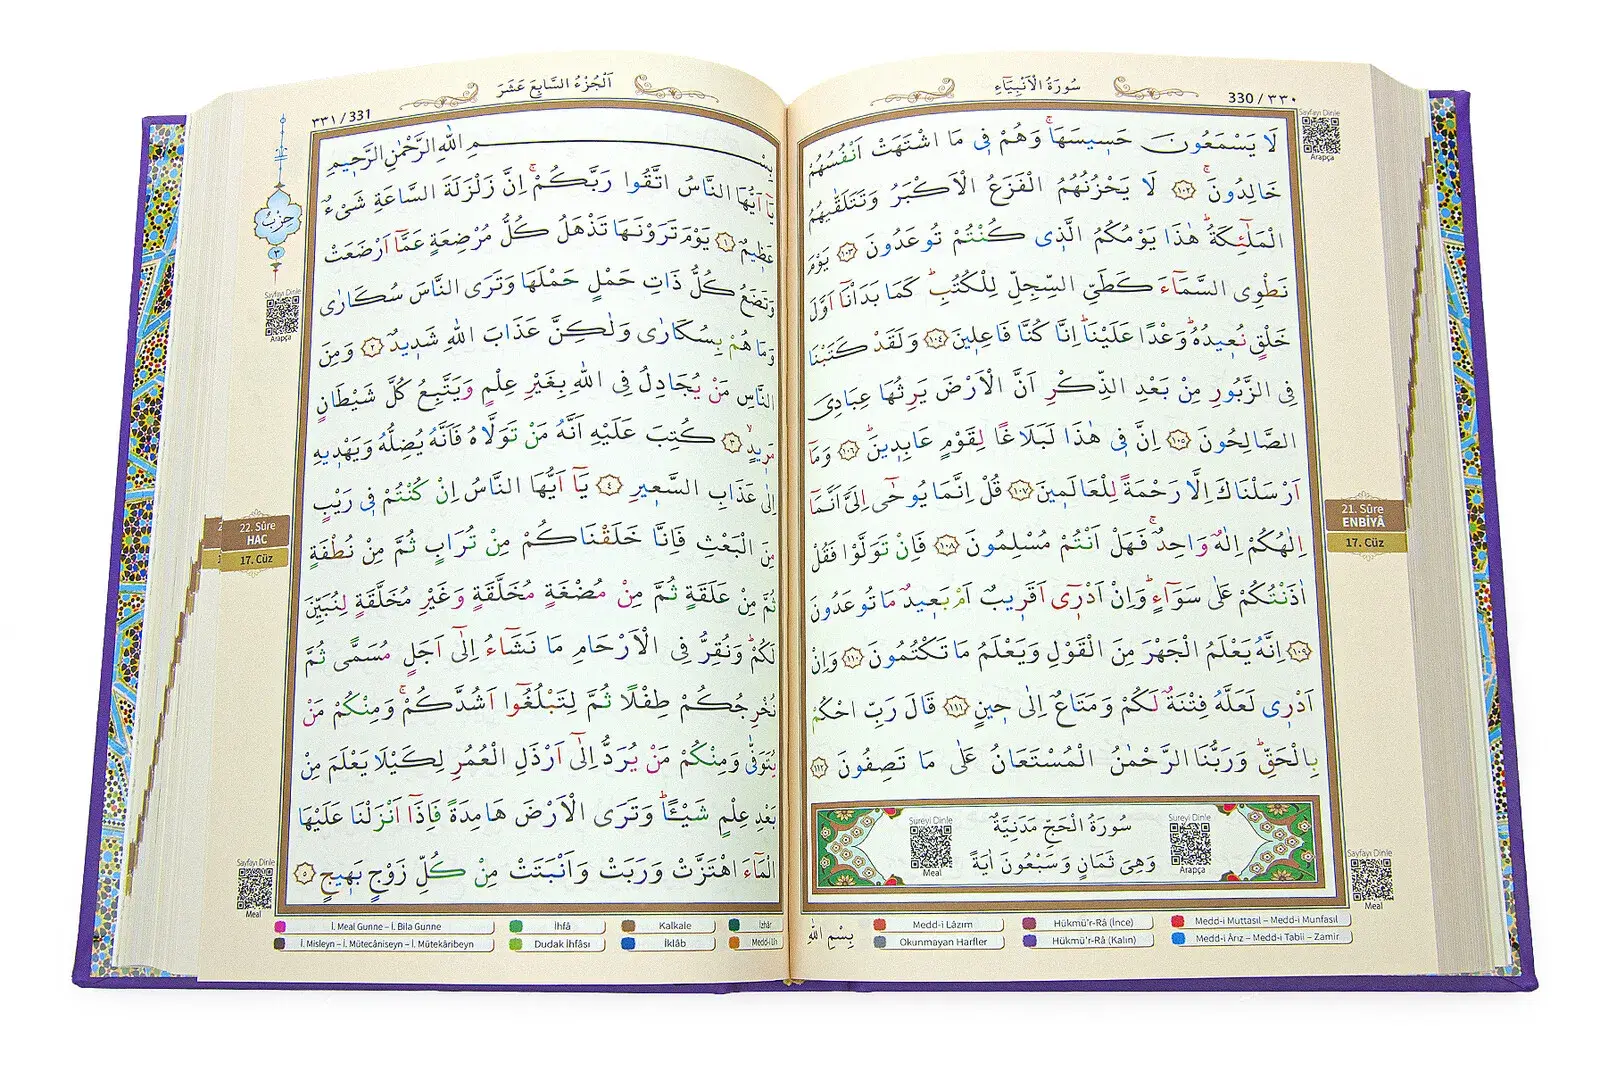 سُورَةُ الْاَنْبِيَٓاءِ
330 / ٣٣٠
Sayfayı Dinle
Arapça
لَا يَسْمَعُونَ حَس۪يسَهَاۚ وَهُمْ ف۪ي مَا اشْتَهَتْ اَنْفُسُهُمْ
خَالِدُونَۚ ﴿١٠٢﴾ لَا يَحْزُنُهُمُ الْفَزَعُ الْاَكْبَرُ وَتَتَلَقّٰيهُمُ
الْمَلٰٓئِكَةُۜ هٰذَا يَوْمُكُمُ الَّذ۪ي كُنْتُمْ تُوعَدُونَ ﴿١٠٣﴾ يَوْمَ
نَطْوِي السَّمَٓاءَ كَطَيِّ السِّجِلِّ لِلْكُتُبِۜ كَمَا بَدَأْنَٓا اَوَّلَ
خَلْقٍ نُع۪يدُهُۜ وَعْدًا عَلَيْنَاۜ اِنَّا كُنَّا فَاعِل۪ينَ ﴿١٠٤﴾ وَلَقَدْ كَتَبْنَا
فِي الزَّبُورِ مِنْ بَعْدِ الذِّكْرِ اَنَّ الْاَرْضَ يَرِثُهَا عِبَادِيَ
الصَّالِحُونَ ﴿١٠٥﴾ اِنَّ ف۪ي هٰذَا لَبَلَاغًا لِقَوْمٍ عَابِد۪ينَۜ ﴿١٠٦﴾ وَمَٓا
اَرْسَلْنَاكَ اِلَّا رَحْمَةً لِلْعَالَم۪ينَ ﴿١٠٧﴾ قُلْ اِنَّمَا يُوحٰٓى اِلَيَّ اَنَّمَٓا
اِلٰهُكُمْ اِلٰهٌ وَاحِدٌۚ فَهَلْ اَنْتُمْ مُسْلِمُونَ ﴿١٠٨﴾ فَاِنْ تَوَلَّوْا فَقُلْ
اٰذَنْتُكُمْ عَلٰى سَوَٓاءٍۜ وَاِنْ اَدْر۪ٓي اَقَر۪يبٌ اَمْ بَع۪يدٌ مَا تُوعَدُونَ
﴿١٠٩﴾ اِنَّهُ يَعْلَمُ الْجَهْرَ مِنَ الْقَوْلِ وَيَعْلَمُ مَا تَكْتُمُونَ ﴿١١٠﴾ وَاِنْ
اَدْر۪ي لَعَلَّهُ فِتْنَةٌ لَكُمْ وَمَتَاعٌ اِلٰى ح۪ينٍ ﴿١١١﴾ قَالَ رَبِّ احْكُمْ
بِالْحَقِّۜ وَرَبُّنَا الرَّحْمٰنُ الْمُسْتَعَانُ عَلٰى مَا تَصِفُونَ ﴿١١٢﴾
Sureyi Dinle
Meal
سُورَةُ الْحَجِّ مَدَنِيَّةٌ
وَهِيَ ثَمَانٍ وَسَبْعُونَ اٰيَةً
Sureyi Dinle
Arapça
21. Sûre
ENBİYÂ
17. Cüz
Sayfayı Dinle
Meal
بِسْمِ اللّٰهِ
Medd-i Lâzım
Hükmü'r-Râ (İnce)
Medd-i Muttasıl – Medd-i Munfasıl
Okunmayan Harfler
Hükmü'r-Râ (Kalın)
Medd-i Ârız – Medd-i Tabii – Zamir
٣٣١ / 331
اَلْجُزْءُ السَّابِعَ عَشَرَ
حِزْبُ
٣
Sayfayı Dinle
Arapça
بِسْمِ اللّٰهِ الرَّحْمٰنِ الرَّح۪يمِ
يَٓا اَيُّهَا النَّاسُ اتَّقُوا رَبَّكُمْۚ اِنَّ زَلْزَلَةَ السَّاعَةِ شَيْءٌ
عَظ۪يمٌ ﴿١﴾ يَوْمَ تَرَوْنَهَا تَذْهَلُ كُلُّ مُرْضِعَةٍ عَمَّٓا اَرْضَعَتْ
وَتَضَعُ كُلُّ ذَاتِ حَمْلٍ حَمْلَهَا وَتَرَى النَّاسَ سُكَارٰى
وَمَا هُمْ بِسُكَارٰى وَلٰكِنَّ عَذَابَ اللّٰهِ شَد۪يدٌ ﴿٢﴾ وَمِنَ
النَّاسِ مَنْ يُجَادِلُ فِي اللّٰهِ بِغَيْرِ عِلْمٍ وَيَتَّبِعُ كُلَّ شَيْطَانٍ
مَر۪يدٍۙ ﴿٣﴾ كُتِبَ عَلَيْهِ اَنَّهُ مَنْ تَوَلَّاهُ فَاَنَّهُ يُضِلُّهُ وَيَهْد۪يهِ
اِلٰى عَذَابِ السَّع۪يرِ ﴿٤﴾ يَٓا اَيُّهَا النَّاسُ اِنْ كُنْتُمْ ف۪ي رَيْبٍ
مِنَ الْبَعْثِ فَاِنَّا خَلَقْنَاكُمْ مِنْ تُرَابٍ ثُمَّ مِنْ نُطْفَةٍ
ثُمَّ مِنْ عَلَقَةٍ ثُمَّ مِنْ مُضْغَةٍ مُخَلَّقَةٍ وَغَيْرِ مُخَلَّقَةٍ لِنُبَيِّنَ
لَكُمْۜ وَنُقِرُّ فِي الْاَرْحَامِ مَا نَشَٓاءُ اِلٰٓى اَجَلٍ مُسَمًّى ثُمَّ
نُخْرِجُكُمْ طِفْلًا ثُمَّ لِتَبْلُغُٓوا اَشُدَّكُمْۚ وَمِنْكُمْ مَنْ
يُتَوَفّٰى وَمِنْكُمْ مَنْ يُرَدُّ اِلٰٓى اَرْذَلِ الْعُمُرِ لِكَيْلَا يَعْلَمَ مِنْ
بَعْدِ عِلْمٍ شَيْـًٔاۜ وَتَرَى الْاَرْضَ هَامِدَةً فَاِذَٓا اَنْزَلْنَا عَلَيْهَا
الْمَٓاءَ اهْتَزَّتْ وَرَبَتْ وَاَنْبَتَتْ مِنْ كُلِّ زَوْجٍ بَه۪يجٍ ﴿٥﴾
22. Sûre
HAC
17. Cüz
Sayfayı Dinle
Meal
İ. Meal Gunne – İ. Bila Gunne
İhfâ
Kalkale
İzhâr
İ. Misleyn – İ. Mütecâniseyn – İ. Mütekâribeyn
Dudak İhfâsı
İklâb
Medd-i Lîn